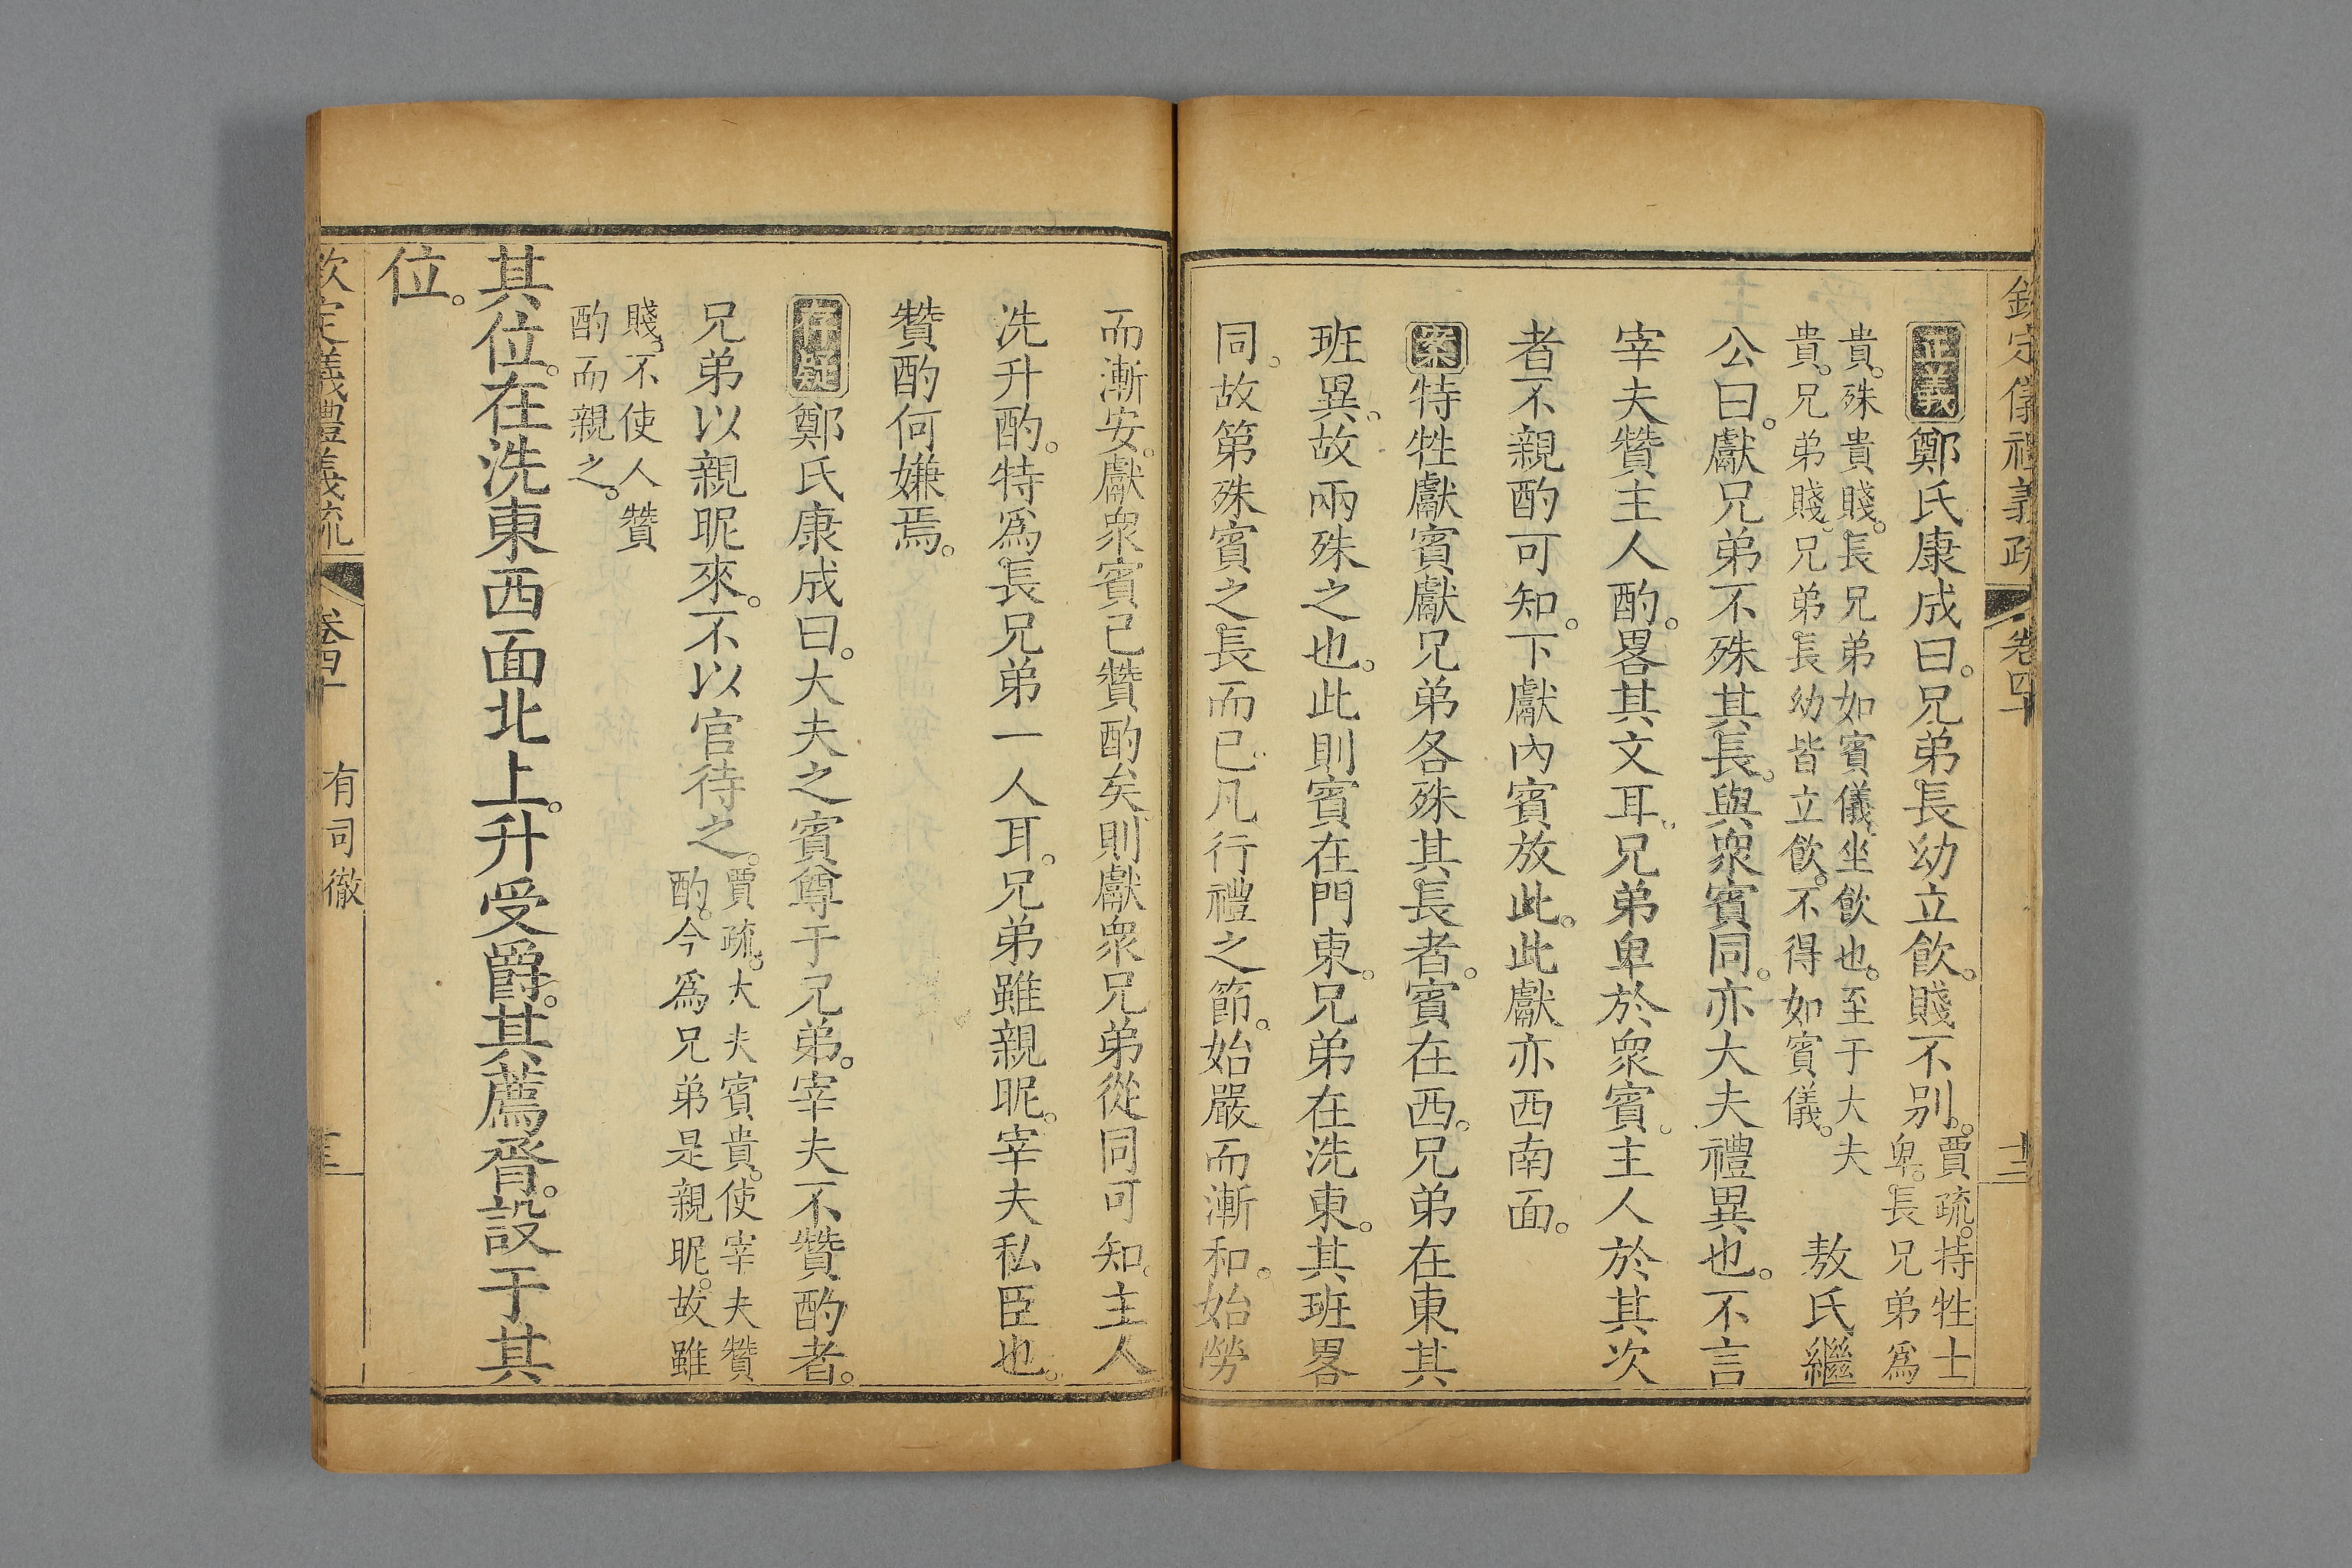 欽定儀禮義疏 卷四十 十三
正義鄭氏康成曰。兄弟長幼立飲。賤不别。賈疏。特牲士
卑。長兄弟爲
貴。殊貴賤。長兄弟如賓儀坐飲也。至于大夫
貴。兄弟賤。兄弟長幼皆立飲。不得如賓儀。
敖氏繼
公曰。獻兄弟不殊其長。與衆賓同。亦大夫禮異也。不言
宰夫贊主人酌。畧其文耳。兄弟卑於衆賓。主人於其次
者不親酌可知。下獻內賓放此。此獻亦西南面。
案特牲獻賓獻兄弟各殊其長者。賓在西。兄弟在東。其
班異。故兩殊之也。此則賓在門東。兄弟在洗東。其班畧
同。故第殊賓之長而已。凡行禮之節。始嚴而漸和。始勞
而漸安。獻衆賓已贊酌矣。則獻衆兄弟從同可知。主人
洗升酌。特爲長兄弟一人耳。兄弟雖親昵。宰夫私臣也。
贊酌何嫌焉。
存疑鄭氏康成曰。大夫之賓尊于兄弟。宰夫不贊酌者。
兄弟以親昵來。不以官待之。賈疏。大夫賓貴。使宰夫贊
酌。今爲兄弟是親昵。故雖
賤。不使人贊
酌而親之。
其位。在洗東西面北上。升受爵。其薦脀。設于其
位。
欽定儀禮義疏 卷四十 有司徹